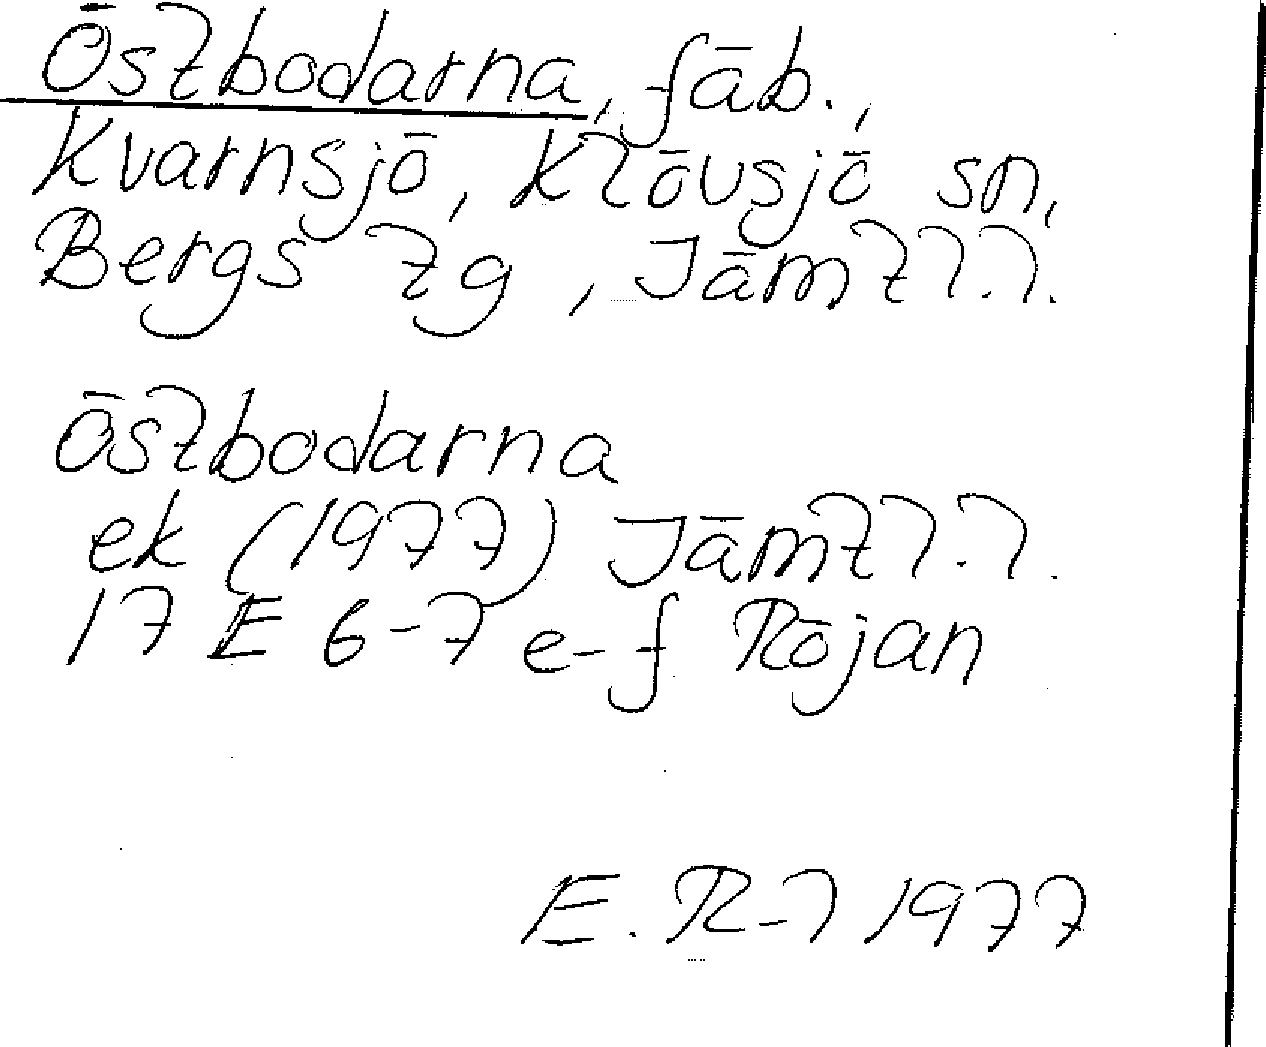 Östbodarna, fäb.,
Kvarnsjö, Klövsjö sn,
Bergs tg, Jämtl.l.
Östbodarna
ek (1977) Jämtl.l.
17 E 6-7 e-f Röjan
E.R-l 1977